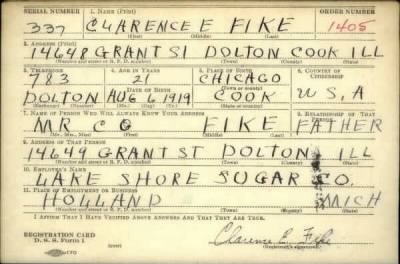 SERIAL NUMBER 1. NAME (Print) ORDER NUMBER
337 CLARENCE E FIKE 1405
(First) (Middle) (Last)
2. ADDRESS (Print)
14648 GRANT ST DOLTON COOK ILL
(Number and street or R. F. D. number) (Town) (County) (State)
3. TELEPHONE 4. AGE IN YEARS 5. PLACE OF BIRTH 6. COUNTRY OF CITIZENSHIP
783 21 CHICAGO
DATE OF BIRTH (Town or county)
DOLTON AUG 6 1919 COOK U S A
(Exchange) (Number) (Mo.) (Day) (Yr.) (State or country)
7. NAME OF PERSON WHO WILL ALWAYS KNOW YOUR ADDRESS 8. RELATIONSHIP OF THAT PERSON
MR. C G FIKE FATHER
(Mr., Mrs., Miss) (First) (Middle) (Last)
9. ADDRESS OF THAT PERSON
14648 GRANT ST DOLTON ILL
(Number and street or R. F. D. number) (Town) (County) (State)
10. EMPLOYER'S NAME
LAKE SHORE SUGAR CO.
11. PLACE OF EMPLOYMENT OR BUSINESS
HOLLAND MICH
(Number and street or R. F. D. number) (Town) (County) (State)
I AFFIRM THAT I HAVE VERIFIED ABOVE ANSWERS AND THAT THEY ARE TRUE.
REGISTRATION CARD
D. S. S. Form 1 (over) Clarence E. Fike
(Registrant's signature)